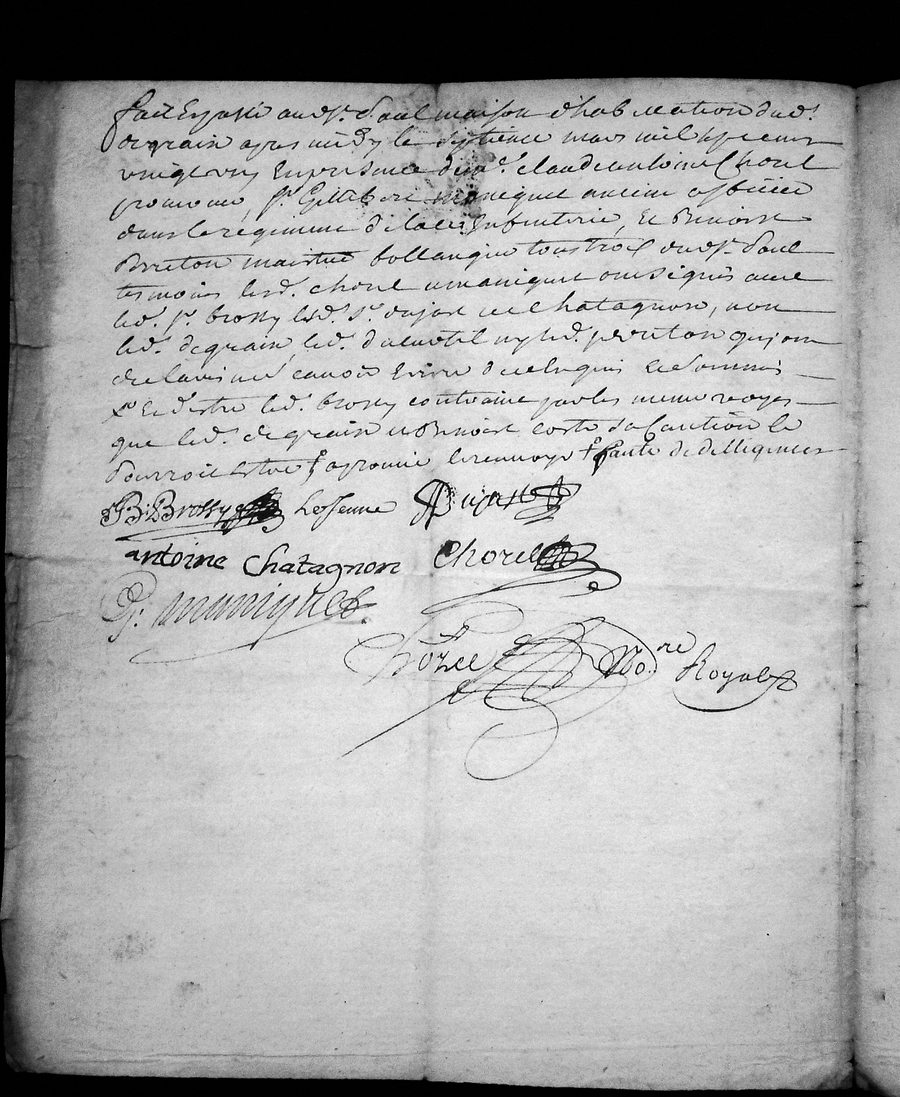 fait et passé aud. st. paul maison d'habitation dud.
degrain apres midy le septieme mars mil sept cens
vingt en presence de me. claude antoine Chorel
sr. Gillibert maniquet ancien officier
dans le regiment de infanterie, et Benoist
Breton maistre bollanger tous trois dud. st. paul
tesmoins lesd. chorel et maniquet ont signés avec
led. sr. brossy lesd. srs. dujast et Chatagnon, non
led. degrain, led. ny led. breton qui ont
declaré ne scavoir escrire de ce enquis et sommés
et d'estre led. brossy contraint par les mesme voyes
que led. degrain et Benoist sa Caution le
pourroit estre faute de dilligences
B: Brossy le Jeune Dujast
antoine Chatagnon Chorel
G: maniquet
No.re Royal